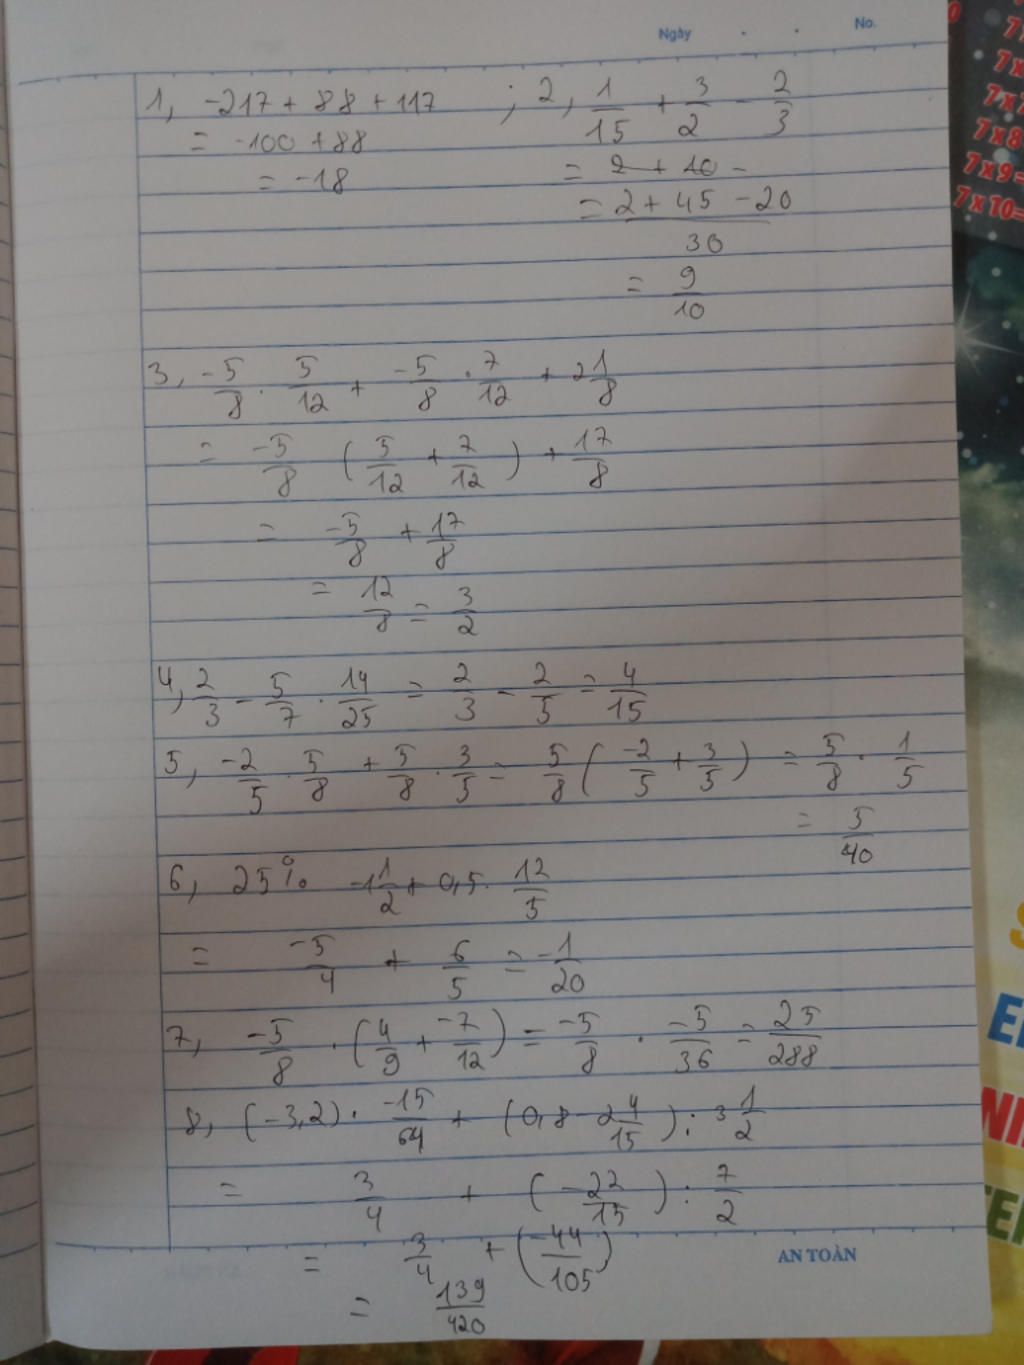 Ngày . . No.
1, -217 + 88 + 117 ; 2, 1/15 + 3/2 - 2/3
= -100 + 88
= -18
= 2 + 40 -
= (2 + 45 - 20)/30
= 9/10
3, -5/8 . 5/12 + -5/8 . 7/12 + 2 1/8
= -5/8 (5/12 + 7/12) + 17/8
= -5/8 + 17/8
= 12/8 = 3/2
4, 2/3 - 5/7 . 14/25 = 2/3 - 2/5 = 4/15
5, -2/5 . 5/8 + 5/8 . 3/5 = 5/8 (-2/5 + 3/5) = 5/8 . 1/5
= 5/40
6, 25% - 1 1/2 + 0,5 . 12/5
= -5/4 + 6/5 = -1/20
7, -5/8 . (4/9 + -7/12) = -5/8 . -5/36 = 25/288
8, (-3,2) . -15/64 + (0,8 - 2 4/15) : 3 1/2
= 3/4 + (-22/15) : 7/2
= 3/4 + (-44/105)
= 139/420
AN TOÀN
7x8
7x9=
7x10=